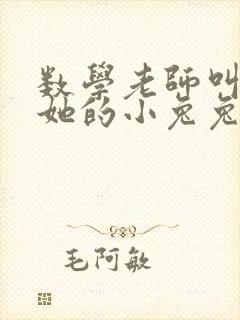 数學老師叫
她的小兔兔
毛阿敏